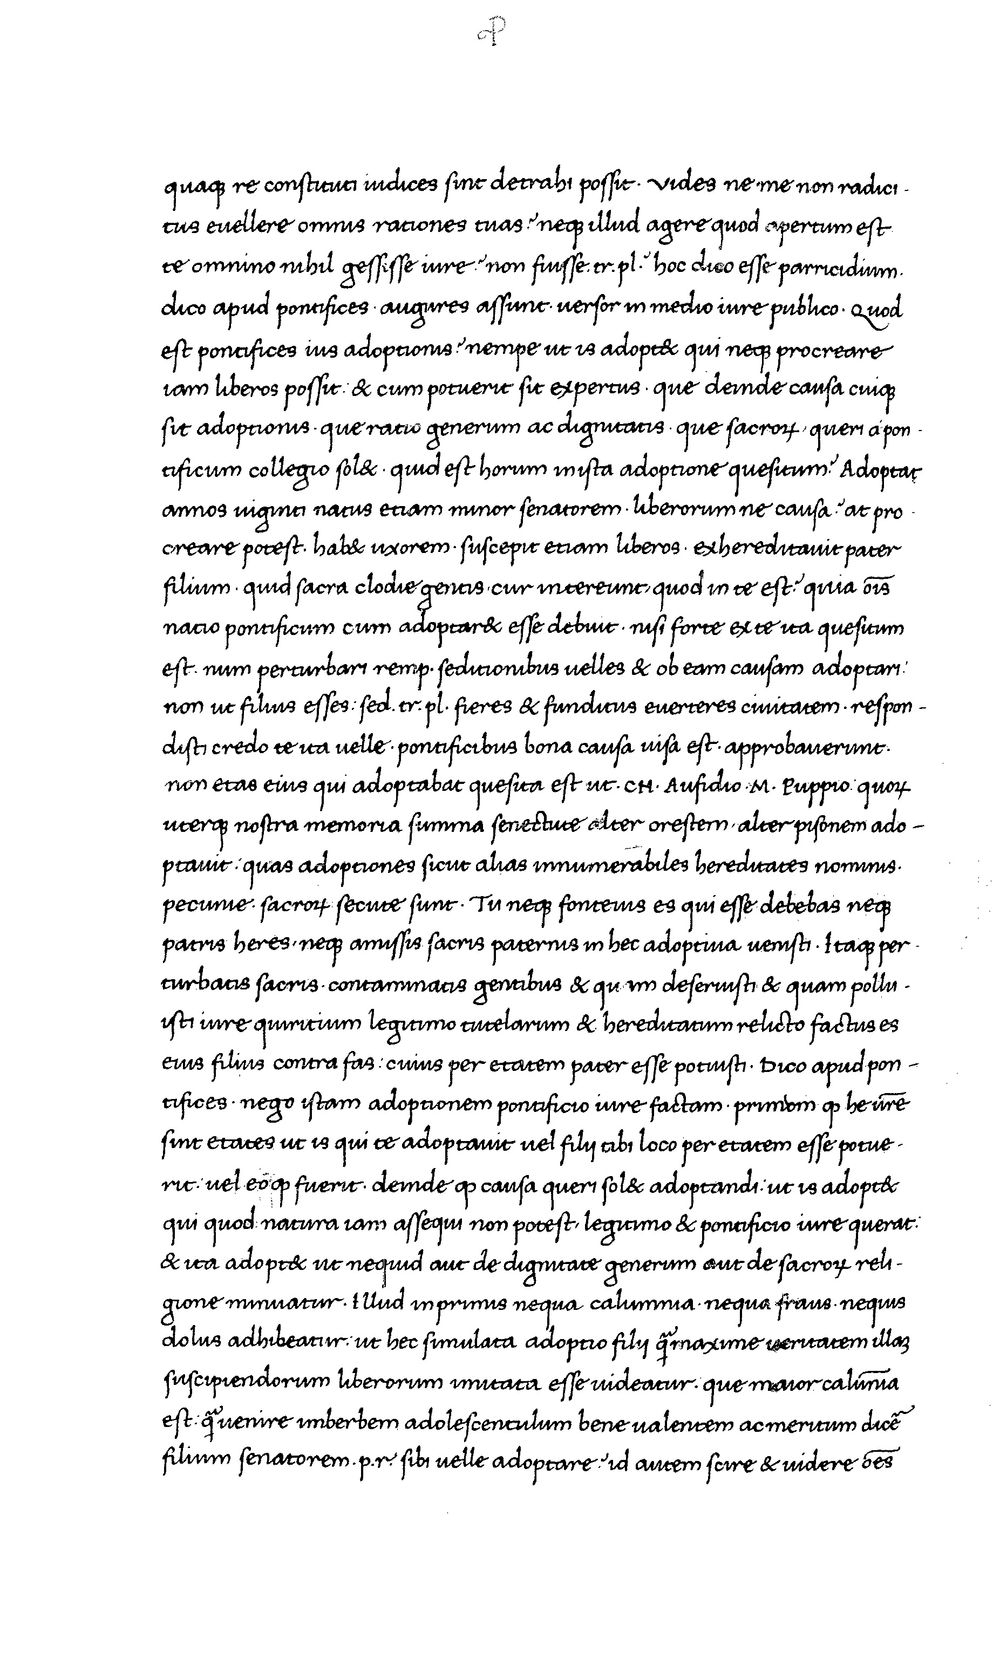 quaqꝫ re constituti iudices sint detrahi possit · Vides ne me non radici-
tus euellere omnis rationes tuas? neqꝫ illud agere quod apertum est
te omnino nihil gessisse iure? non fuisse .tr. pl.? hoc dico esse parricidium.
dico apud pontifices · augures assunt · uersor in medio iure publico · Quod
est pontifices ius adoptionis? nempe ut is adopt& qui neqꝫ procreare
iam liberos possit: & cum potuerit sit expertus · que deinde causa cuiqꝫ
sit adoptionis · que ratio generum ac dignitatis · que sacroꝝ, queri a pon-
tificum collegio sol& · quid est horum in ista adoptione quesitum? Adoptat
annos uiginti natus etiam minor senatorem · liberorum ne causa? at pro-
creare potest · hab& uxorem · suscepit etiam liberos · exhereditauit pater
filium · quid sacra clodie gentis, cur intereunt, quod in te est? quia oı̅s
natio pontificum cum adoptar& esse debuit · nisi forte ex te ita quesitum
est · num perturbari remp· seditionibus uelles & ob eam causam adoptari:
non ut filius esses: sed .tr. pl. fieres & funditus euerteres ciuitatem · respon-
disti credo te ita uelle · pontificibus bona causa uisa est · approbauerunt ·
non etas eius qui adoptabat quesita est ut · CN · Aufidio · M · Puppio: quoꝝ
uterqꝫ nostra memoria summa senectute alter orestem, alter pisonem ado-
ptauit: quas adoptiones sicut alias innumerabiles hereditates nominis ·
pecunie · sacroꝝ secute sunt · Tu neqꝫ fonteius es qui esse debebas neqꝫ
patris heres, neqꝫ amissis sacris paternis in hec adoptiua uenisti · Itaqꝫ per-
turbatis sacris · contaminatis gentibus & qu im deseruisti & quam pollu-
isti iure quiritium legitimo tutelarum & hereditatum relicto factus es
eius filius contra fas: cuius per etatem pater esse potuisti · Dico apud pon-
tifices · nego istam adoptionem pontificio iure factam · primum ꝙ he ur̅e
sint etates ut is qui te adoptauit uel filij tibi loco per etatem esse potue-
rit: uel eo ꝙ fuerit · deinde ꝙ causa queri sol& adoptandi: ut is adopt&
qui quod natura iam assequi non potest, legitimo & pontificio iure querat:
& ita adopt& ut nequid aut de dignitate generum aut de sacroꝝ reli-
gione minuatur · Illud inprimis nequa calumnia · nequa fraus · nequis
dolus adhibeatur: ut hec simulata adoptio filij q̃ maxime ueritatem illaꝫ
suscipiendorum liberorum imitata esse uideatur · que maior calum̅ia
est: q̃ uenire imberbem adolescentulum bene ualentem ac meritum dicẽ
filium senatorem .p.r. sibi uelle adoptare? id autem scire & uidere oe̅s